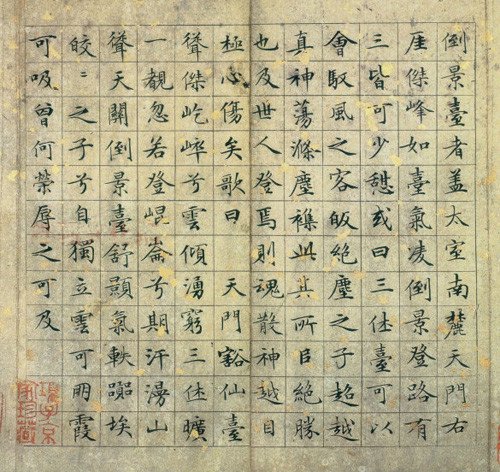 倒景臺者蓋太室南麓天門右
厓傑峰如臺氣凌倒景登路有
三皆可少憇或曰三休臺可以
會馭風之客皈絕塵之子超越
真神蕩滌塵襟此其所絕勝
也及世人登焉則魂散神越目
極心傷矣歌曰 天門豁仙臺
聳傑屹崒兮雲傾湧窮三休曠
一覩忽若登崐崙兮期汗漫山
聳天關倒景臺舒顥氣軼囂埃
皎〻之子兮自獨立雲可朋霞
可吸曾何榮辱之可及
項子京
家珍藏